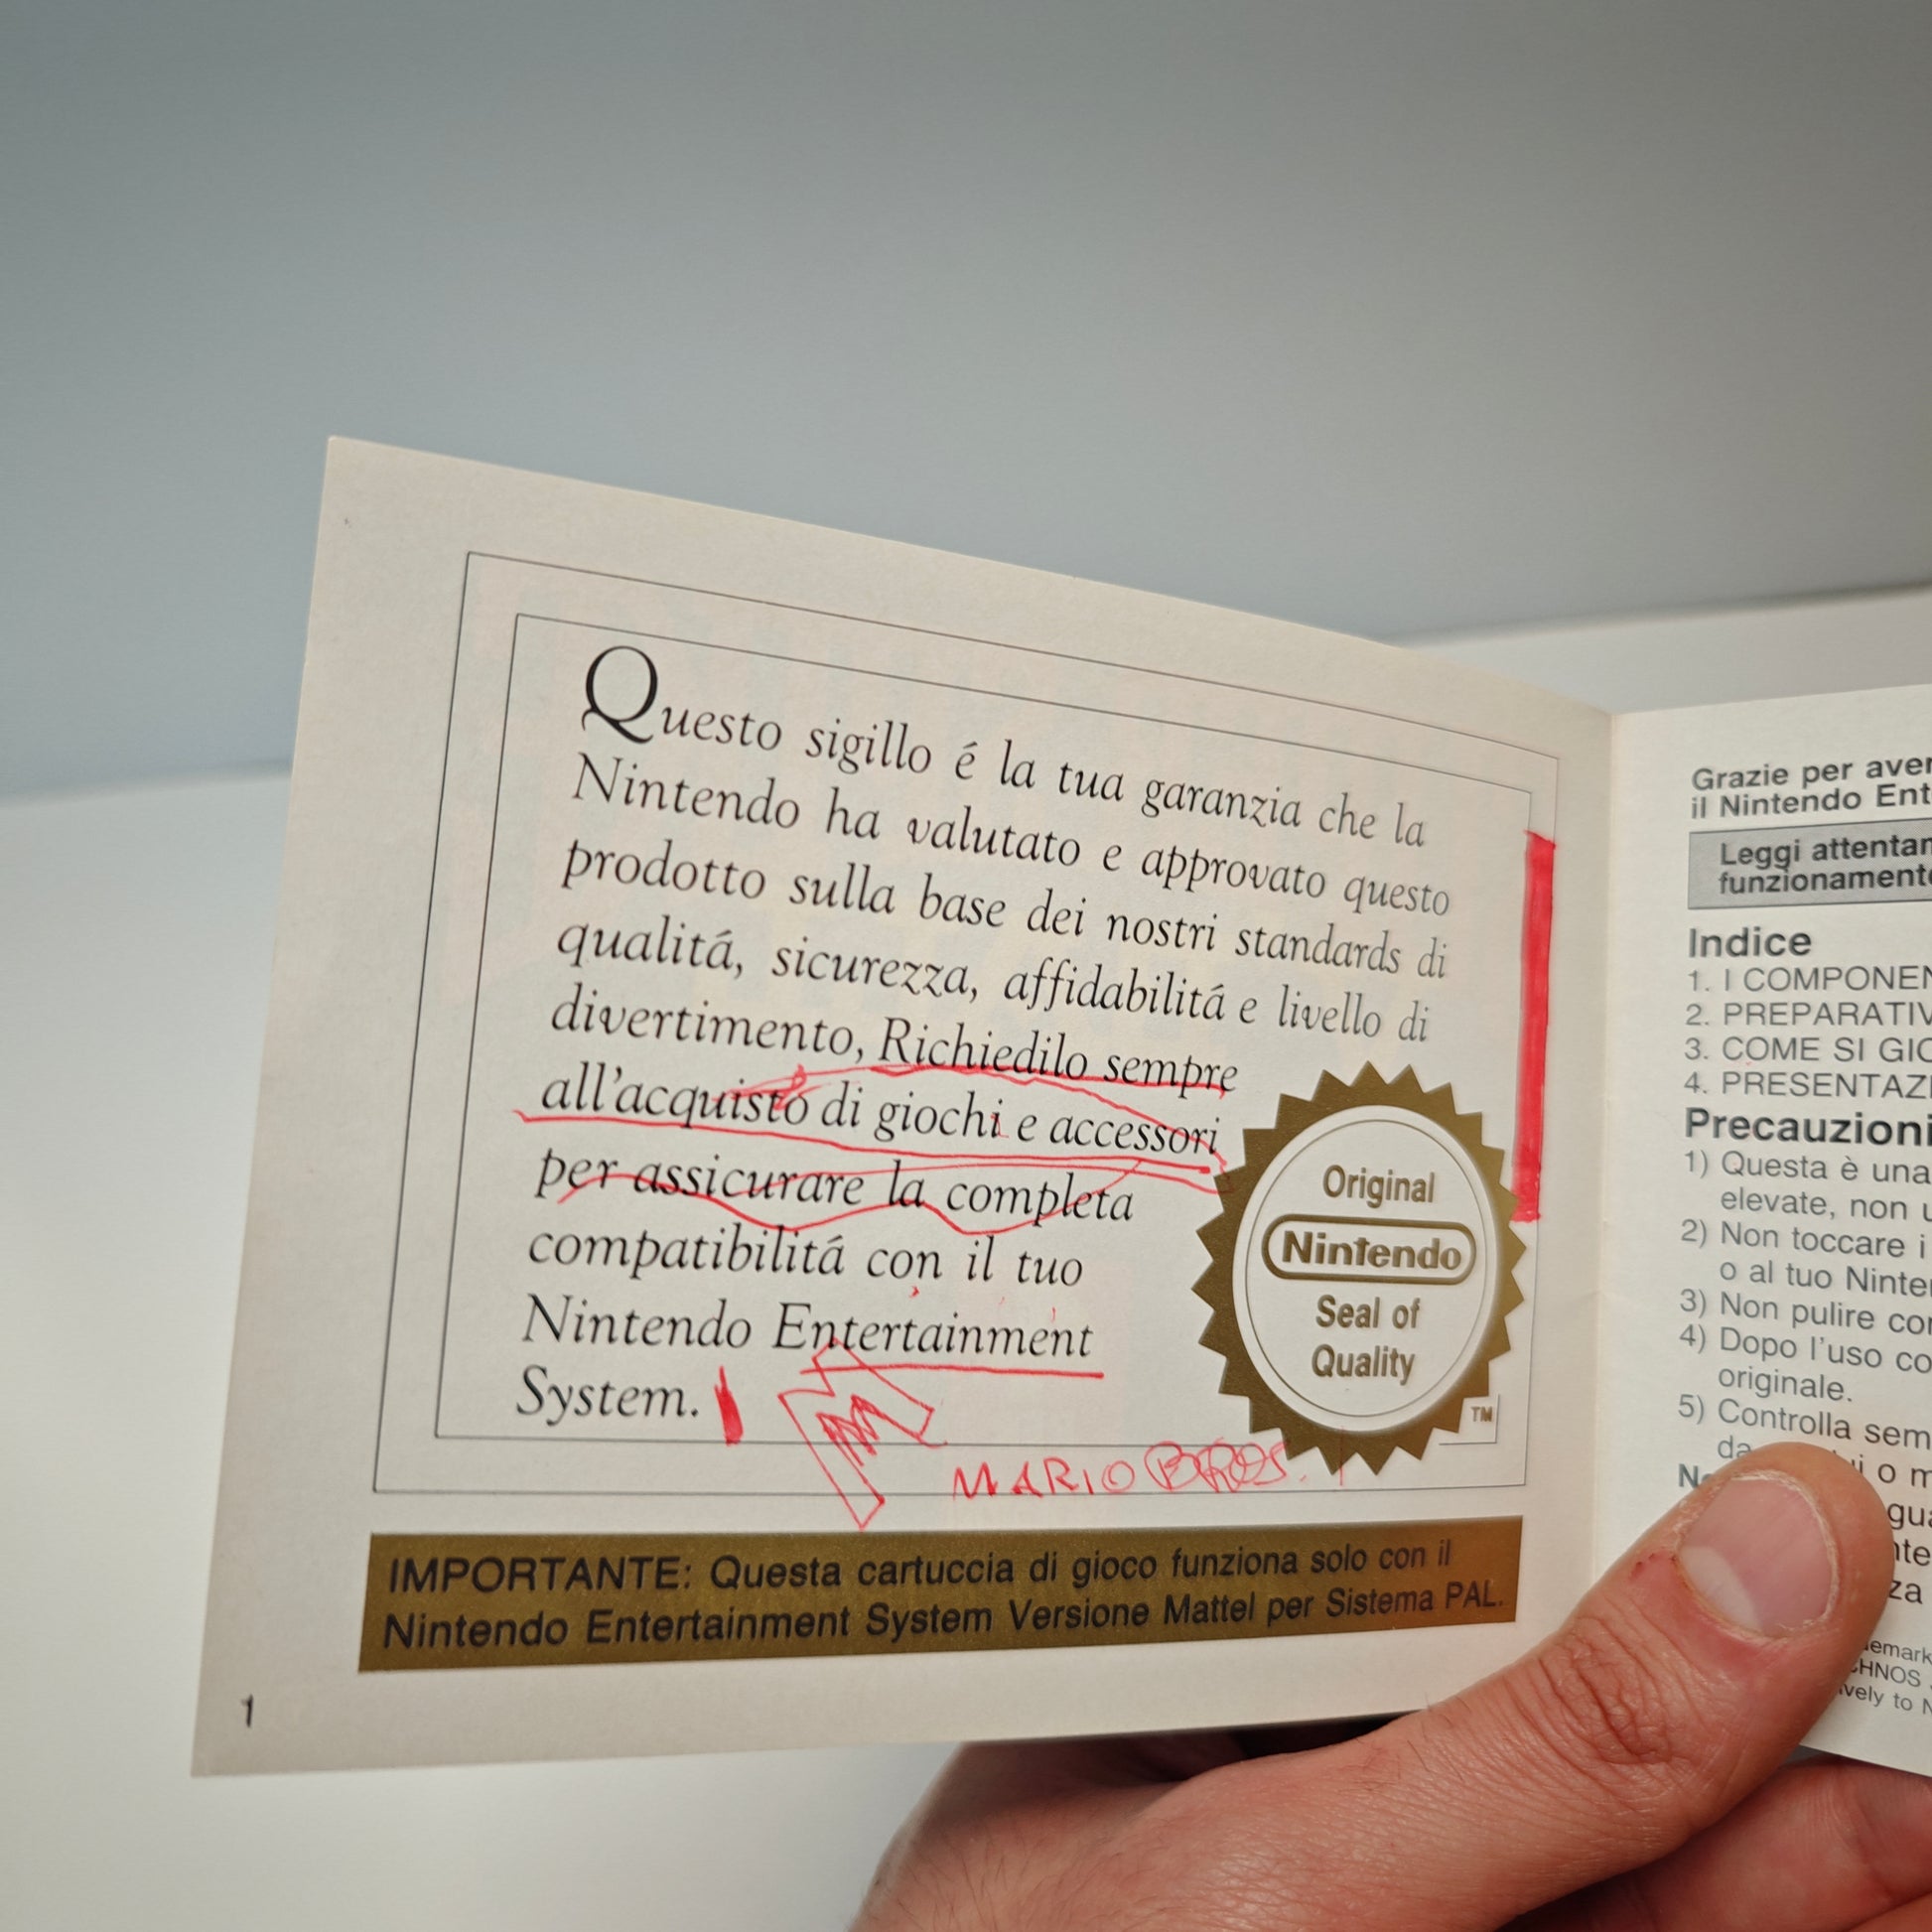 Questo sigillo é la tua garanzia che la
Nintendo ha valutato e approvato questo
prodotto sulla base dei nostri standards di
qualitá, sicurezza, affidabilitá e livello di
divertimento, Richiedilo sempre
all'acquisto di giochi e accessori
per assicurare la completa
compatibilitá con il tuo
Nintendo Entertainment
System.
Original
Nintendo
Seal of
Quality
TM
MARIO BROS.
IMPORTANTE: Questa cartuccia di gioco funziona solo con il
Nintendo Entertainment System Versione Mattel per Sistema PAL.
1
Grazie per aver
il Nintendo Ent
Leggi attentam
funzionamento
Indice
1. I COMPONEN
2. PREPARATIV
3. COME SI GIO
4. PRESENTAZI
Precauzioni
1) Questa è una
elevate, non u
2) Non toccare i
o al tuo Ninten
3) Non pulire con
4) Dopo l'uso co
originale.
5) Controlla sem
da
o m